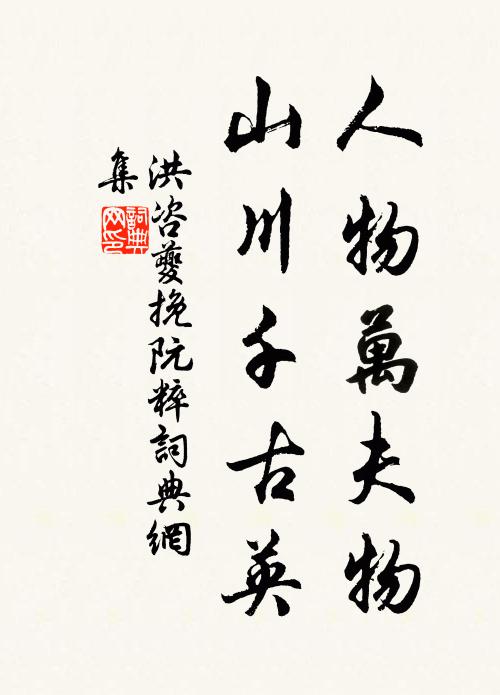 人物萬夫物
山川千古英
洪咨夔挽阮粹詞典網
集
詞典網印